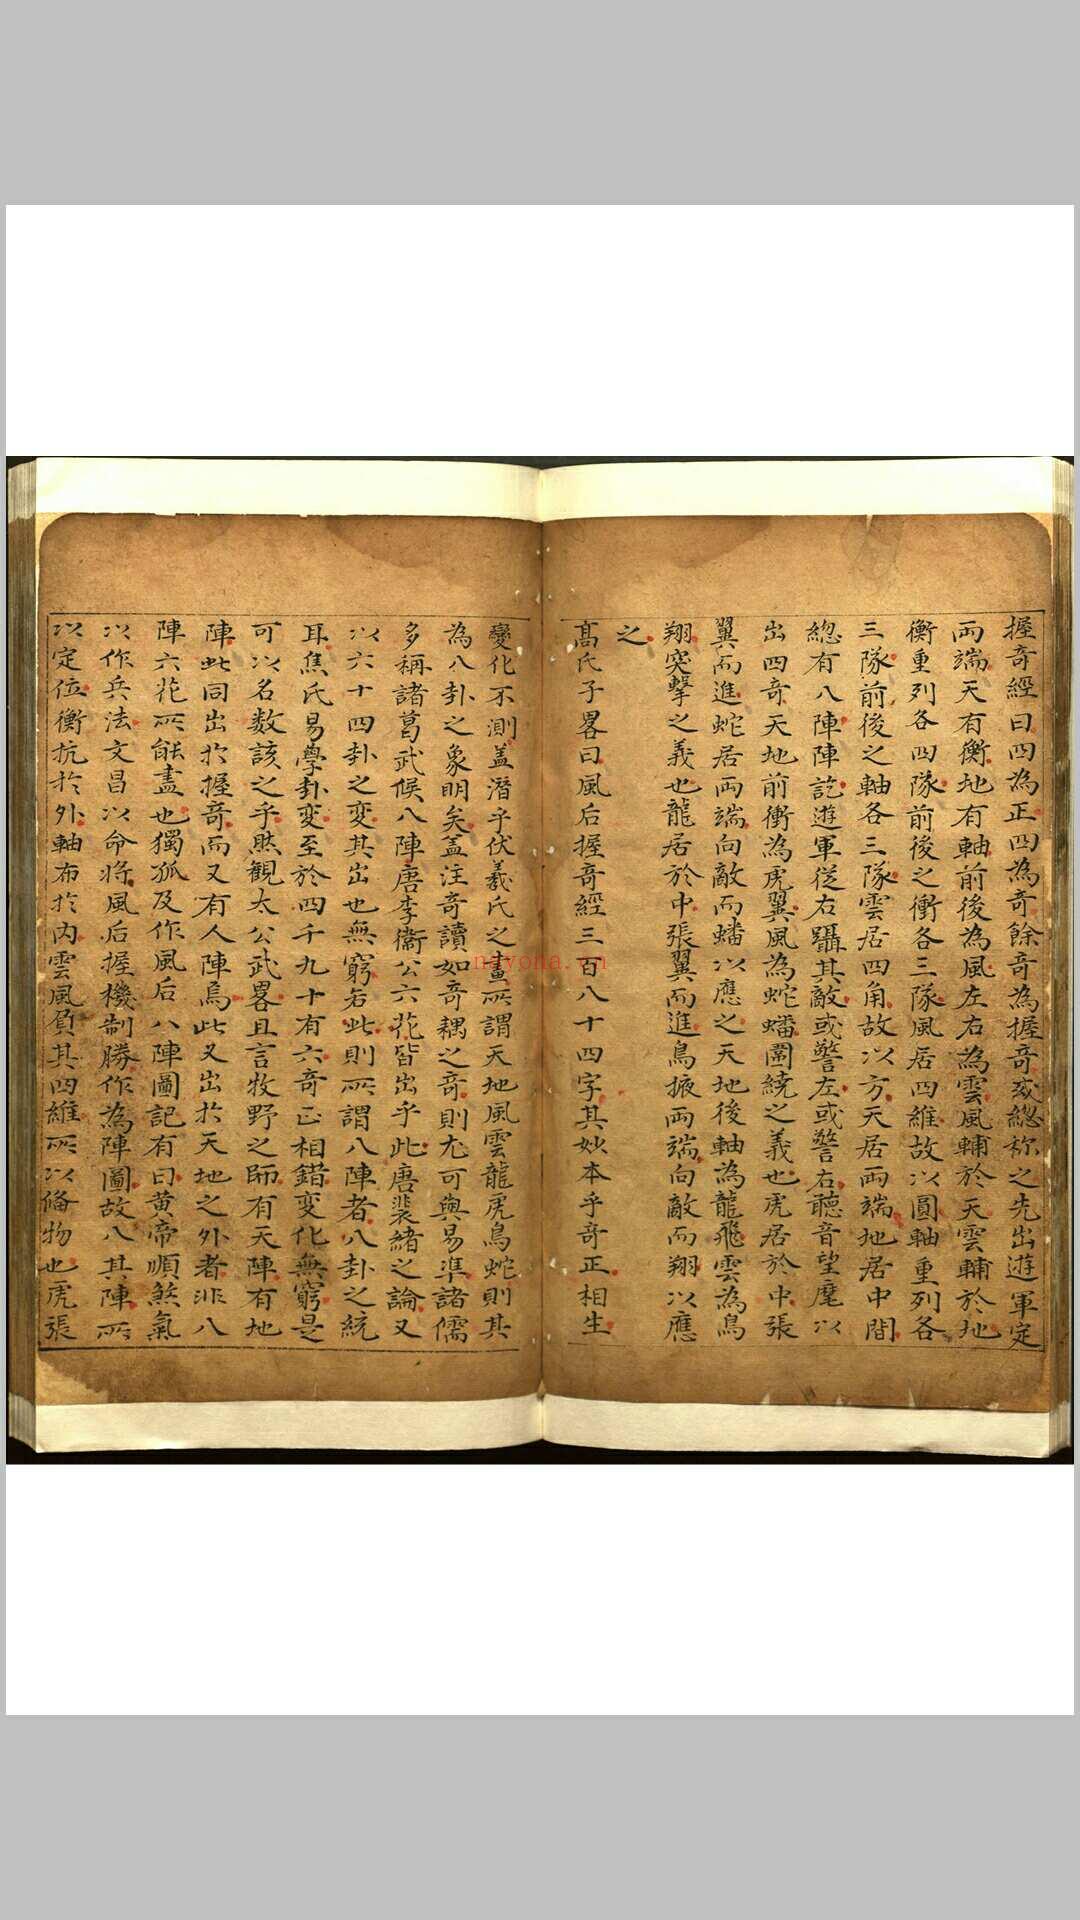 握奇經曰四為正四為奇餘奇為握奇或總称之先出遊軍定
両端天有衡地有軸前後為風左右為雲風輔於天雲輔於地
衝重列各四隊前後之衝各三隊風居四維故以圓軸重列各
三隊前後之軸各三隊雲居四角故以方天居両端地居中間
緫有八陣陣訖遊軍從右躡其敵或警左或警右聴音望麾以
出四奇天地前衝為虎翼風為蛇蟠圍繞之義也虎居於中張
翼而進蛇居両端向敵而蟠以應之天地後軸為龍飛雲為鳥
翔突擊之義也龍居於中張翼而進鳥掖両端向敵而翔以應
之
髙氏子畧曰風后握奇經三百八十四字其妙本乎奇正相生
變化不測盖潛乎伏羲氏之畫所謂天地風雲龍虎鳥蛇則其
為八卦之象明矣盖注奇讀如奇耦之奇則尤可與易準諸儒
多稱諸葛武候八陣唐李衞公六花皆出乎此唐裴緒之論又
以六十四卦之変其出也無窮若此則所謂八陣者八卦之統
耳焦氏易學卦変至於四千九十有六奇正相錯変化無窮是
可以名数該之乎然觀太公武畧且言牧野之師有天陣有地
陣此同出於握奇而又有人陣焉此又出於天地之外者非八
陣六花所能盡也獨孤及作風后八陣圖記有曰黄帝順煞氣
以作兵法文昌以命将風后握機制勝作為陣圖故八其陣所
以定位衡抗於外軸布於内雲風負其四維所以俻物也虎張
nayona.cn